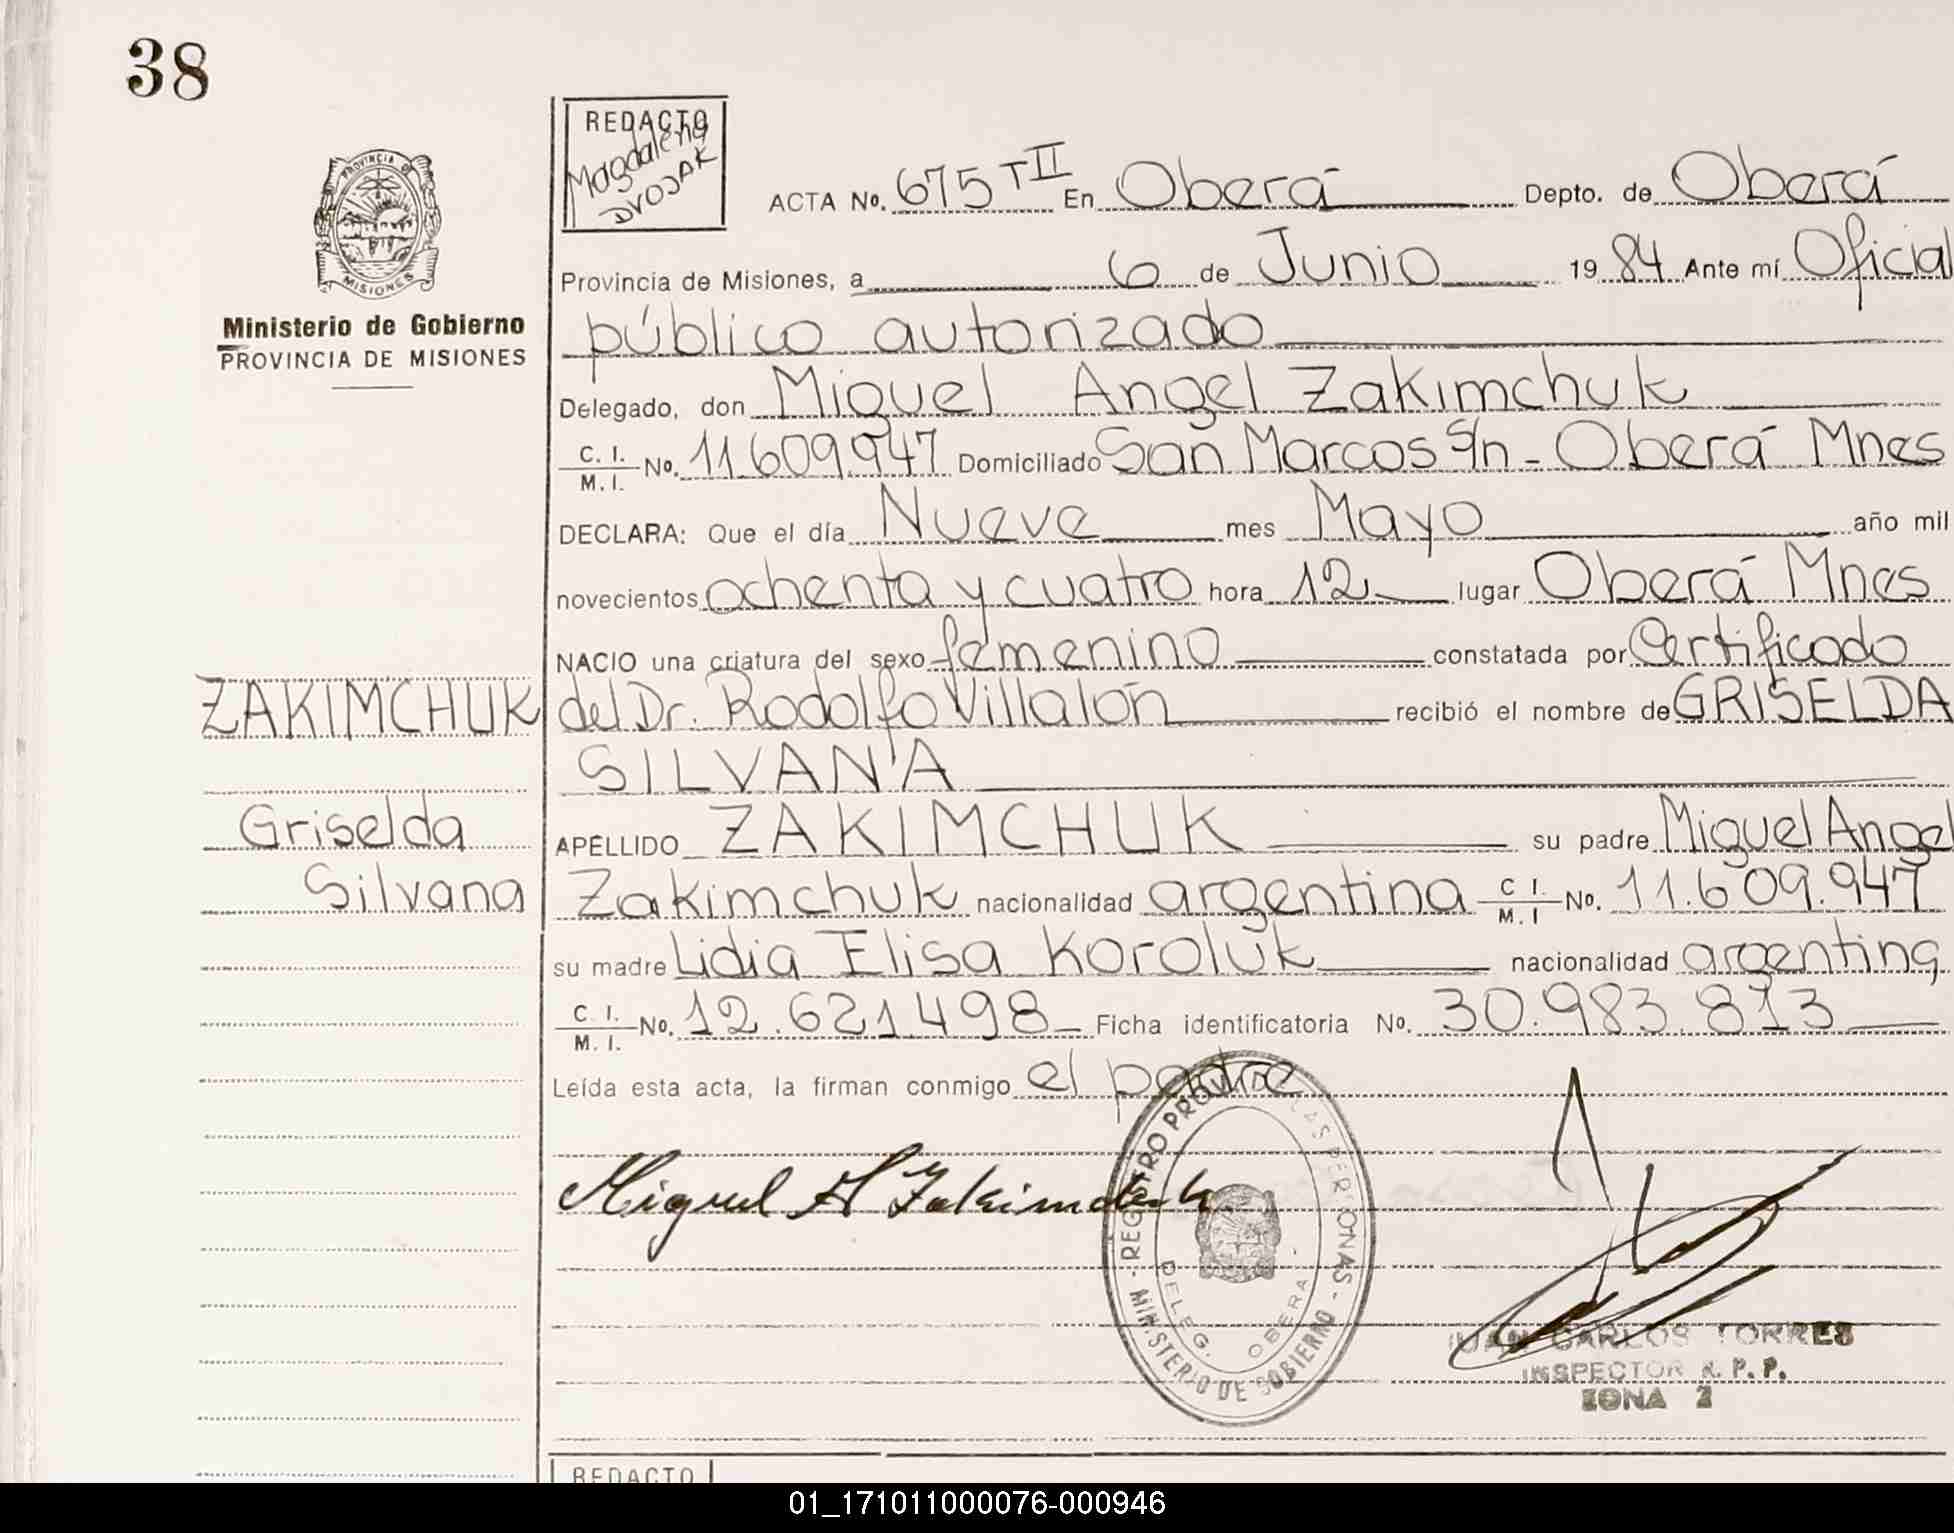 38
REDACTO
Magdalena
DVOJAK
ACTA No. 675 T II En Oberá Depto. de Oberá
PROVINCIA DE
MISIONES
Provincia de Misiones, a 6 de Junio 19 84 Ante mí Oficial
Ministerio de Gobierno
PROVINCIA DE MISIONES
público autorizado
Delegado, don Miguel Angel Zakimchuk
C. I.
M. I. No. 11.609.947 Domiciliado San Marcos S/n - Oberá Mnes
DECLARA: Que el día Nueve mes Mayo año mil
novecientos ochenta y cuatro hora 12 lugar Oberá Mnes
NACIO una criatura del sexo femenino constatada por Certificado
ZAKIMCHUK
del Dr. Rodolfo Villalón recibió el nombre de GRISELDA
SILVANA
Griselda
Silvana
APELLIDO ZAKIMCHUK su padre Miguel Angel
Zakimchuk nacionalidad argentina C I.
M. I No. 11.609.947
su madre Lidia Elisa Koroluk nacionalidad argentina
C. I.
M. I. No. 12.621.498 Ficha identificatoria No. 30.983.813
Leída esta acta, la firman conmigo el padre
Miguel A Zakimchuk
REGISTRO PROV. DE LAS PERSONAS
- MINISTERIO DE GOBIERNO -
DELEG. OBERA
JUAN CARLOS TORRES
INSPECTOR R. P. P.
ZONA 2
REDACTO
01_171011000076-000946